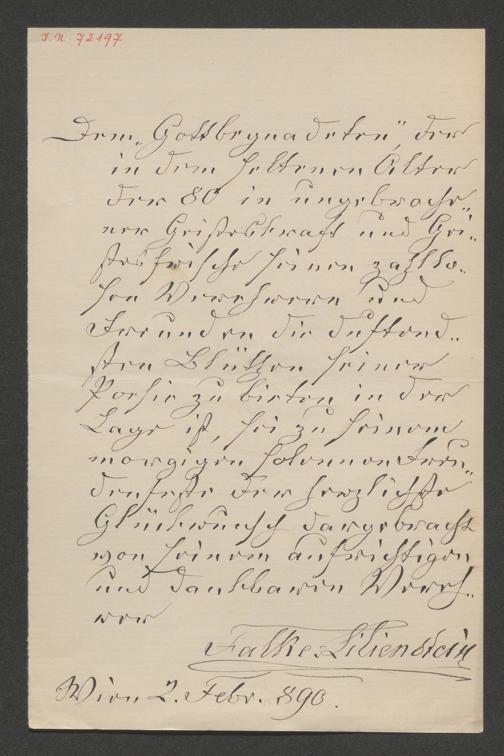 I.N. 72197
Dem „Gottbegnadeten" der
in dem seltenen Alter
der 80 in ungebroche„
ner Geisteskraft und Gei„
stesfrische seinen zahllo„
sen Verehrern und
Freunden die duftend„
sten Blüthen seiner
Poesie zu bieten in der
Lage ist, sei zu seinem
morgigen solennen Freu„
denfeste der herzlichste
Glückwunsch dargebracht
von seinem aufrichtigen
und dankbaren Vereh„
rer
Falke-Lilienstein
Wien 2. Febr. 890.